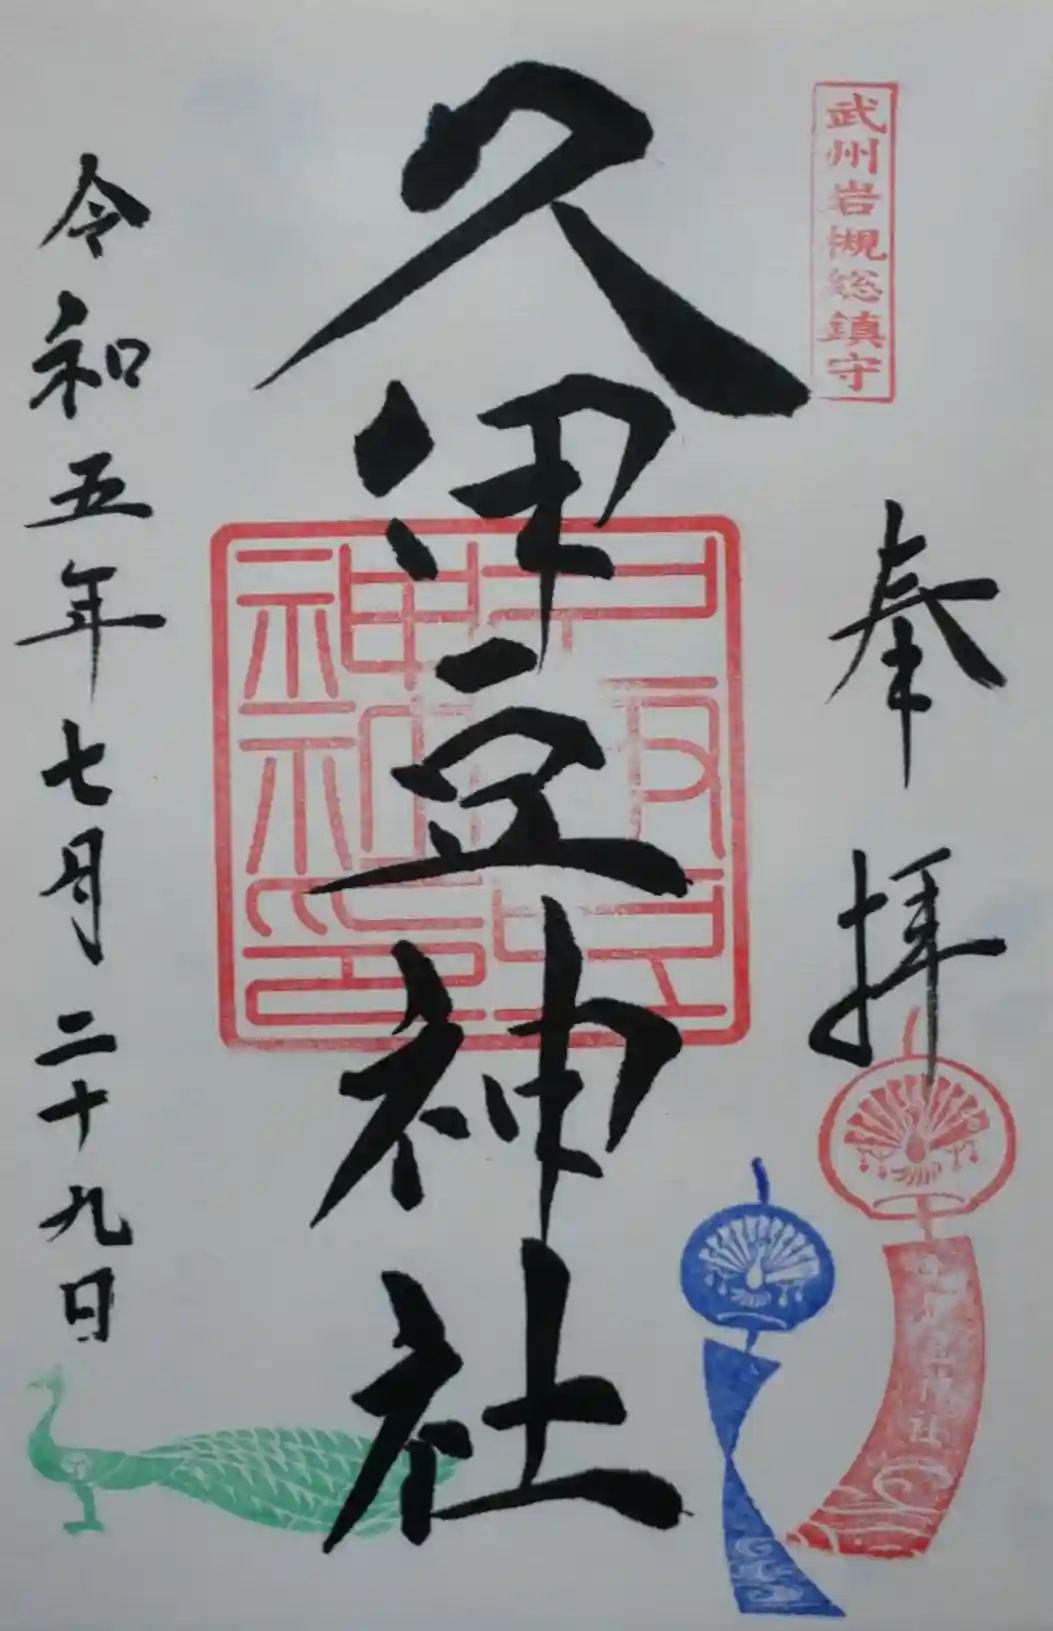 武州岩槻総鎮守
奉拝
久伊豆神社
令和五年七月二十九日